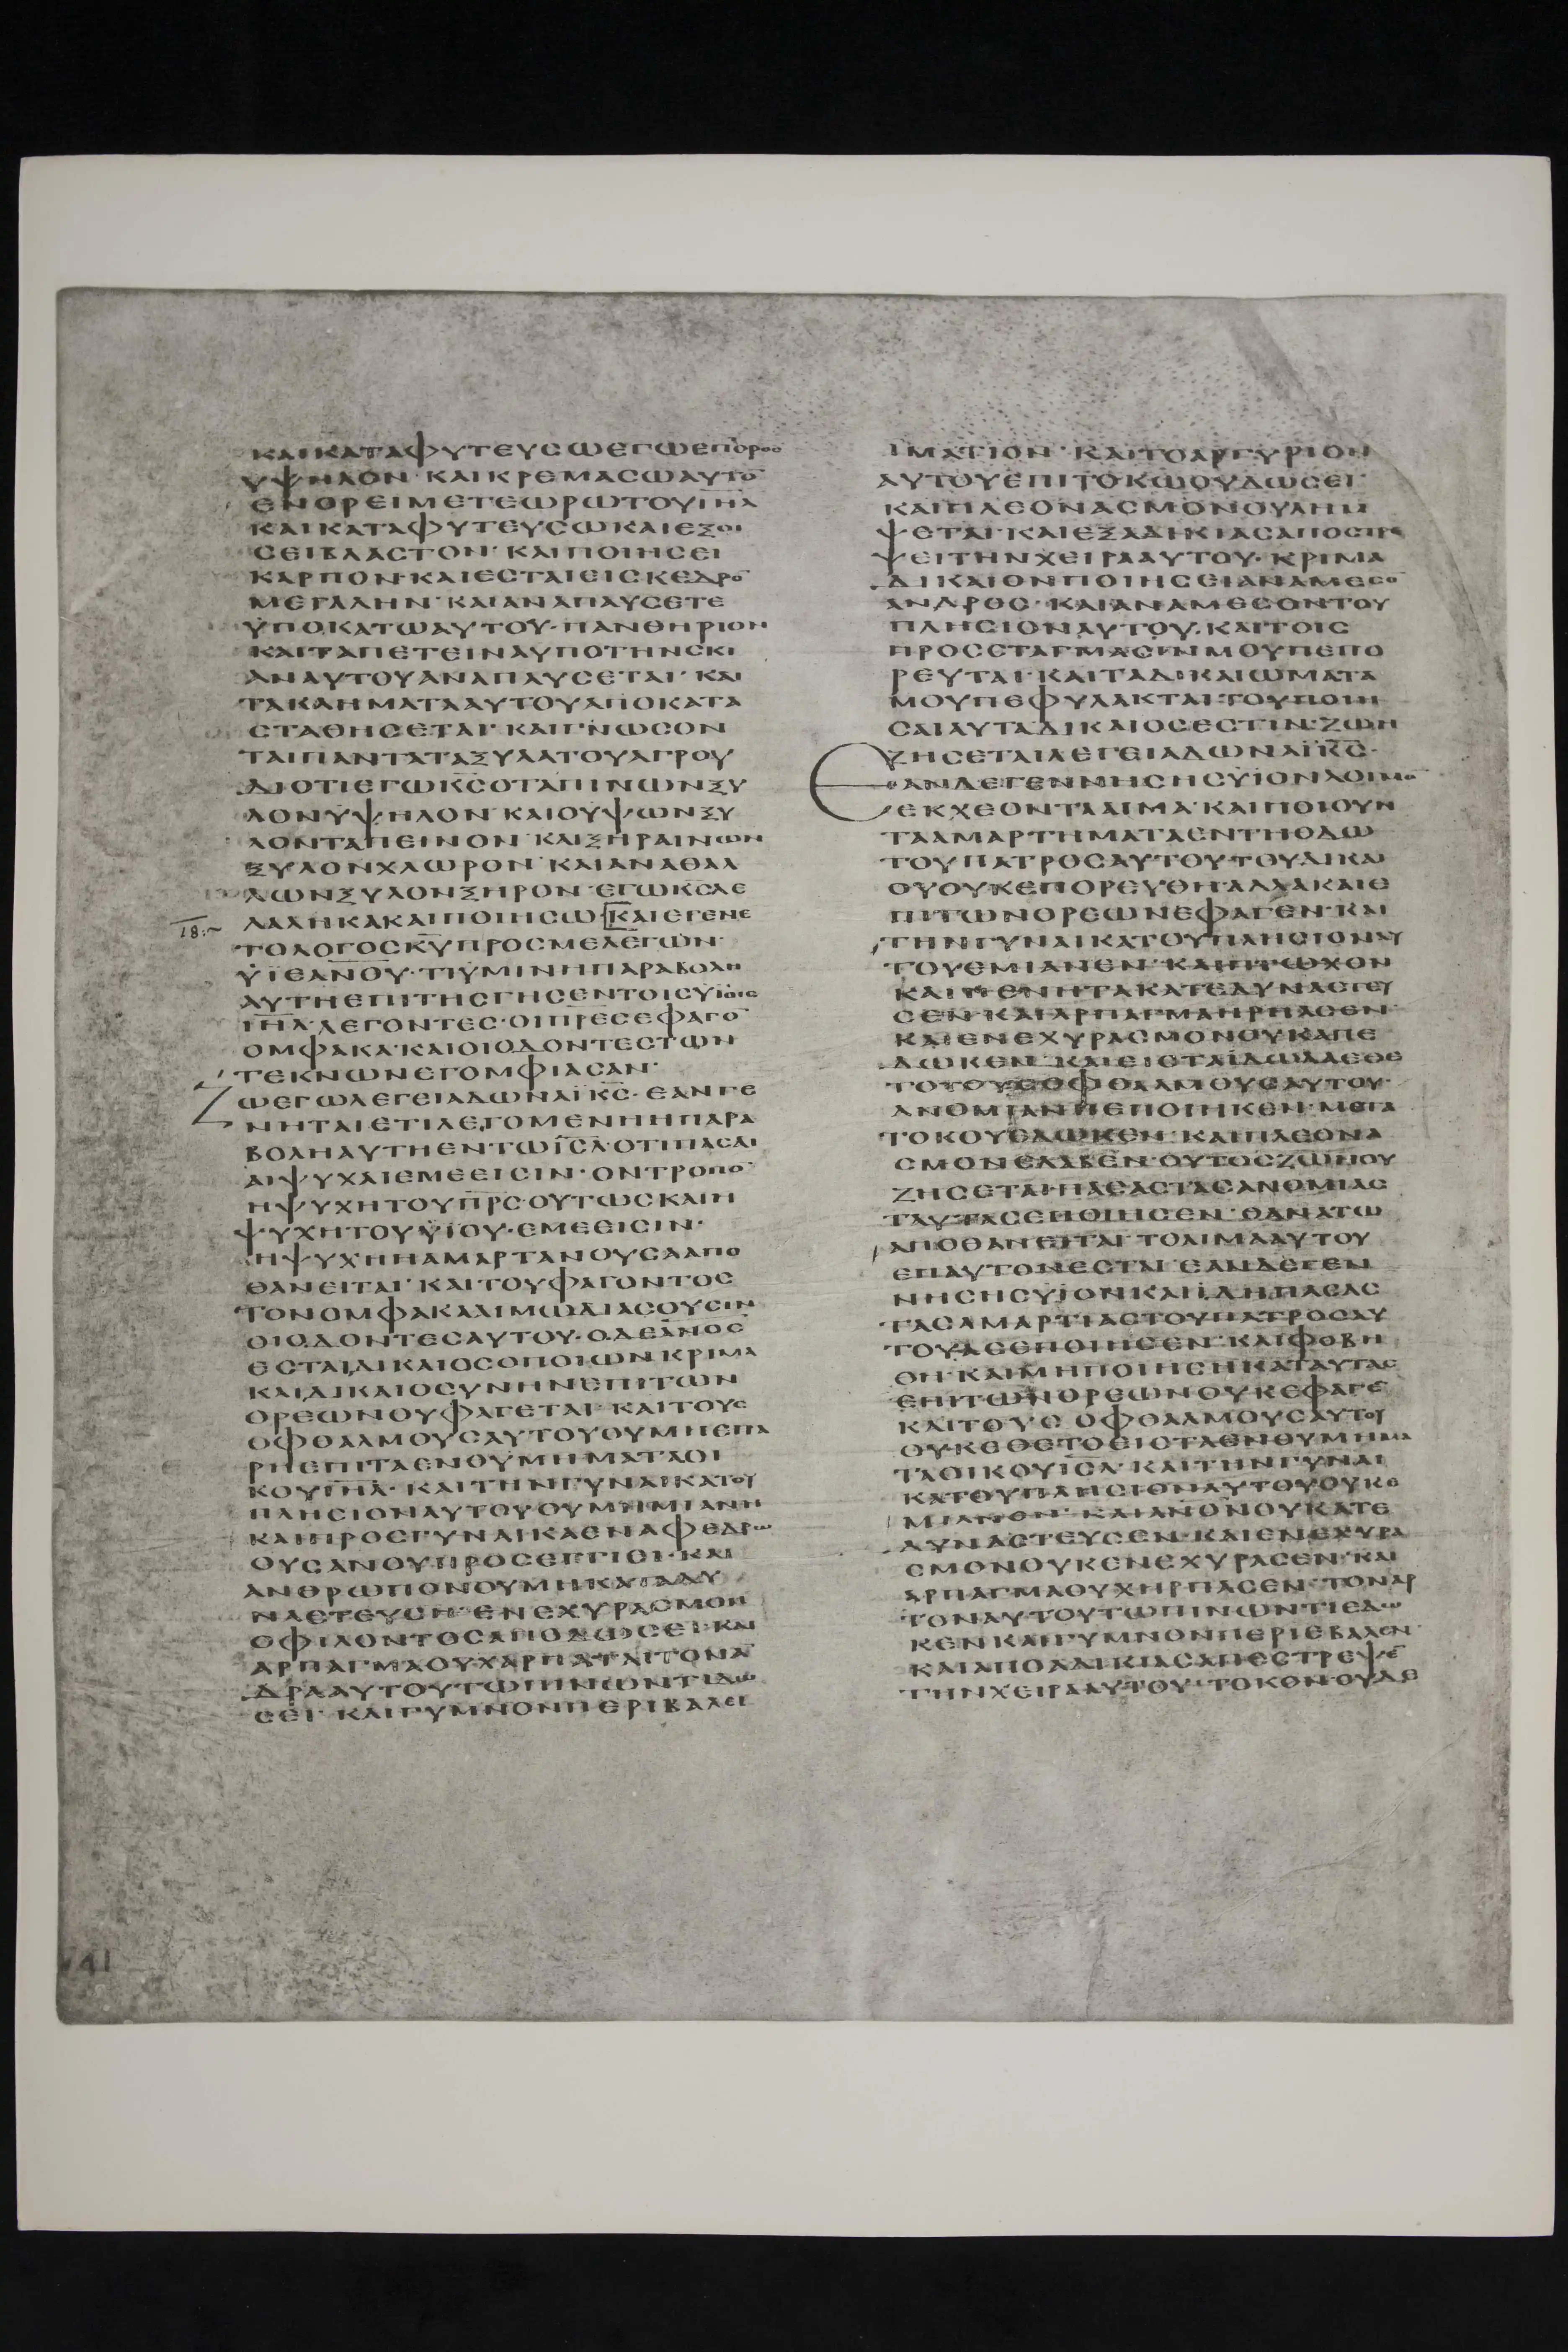 ΚΑΙΚΑΤΑΦΥΤΕΥΣΩΕΓΩΕΠΟΡΟΣ
ΥΨΗΛΟΝ· ΚΑΙΚΡΕΜΑΣΩΑΥΤΟ̅
ΕΝΟΡΕΙΜΕΤΕΩΡΩΤΟΥΙ̅Η̅Λ̅
ΚΑΙΚΑΤΑΦΥΤΕΥΣΩΚΑΙΕΞΟΙ
ΣΕΙΒΛΑΣΤΟΝ· ΚΑΙΠΟΙΗΣΕΙ
ΚΑΡΠΟΝ· ΚΑΙΕΣΤΑΙΕΙΣΚΕΔΡΟ̅
ΜΕΓΑΛΗΝ· ΚΑΙΑΝΑΠΑΥΣΕΤΕ
ΥΠΟΚΑΤΩΑΥΤΟΥ· ΠΑΝΘΗΡΙΟΝ
ΚΑΙΠΑΠΕΤΕΙΝΑΥΠΟΤΗΝΣΚΙ
ΑΝΑΥΤΟΥΑΝΑΠΑΥΣΕΤΑΙ· ΚΑΙ
ΤΑΚΛΗΜΑΤΑΑΥΤΟΥΑΠΟΚΑΤΑ
ΣΤΑΘΗΣΕΤΑΙ· ΚΑΙΓΝΩΣΟΝ
ΤΑΙΠΑΝΤΑΤΑΞΥΛΑΤΟΥΑΓΡΟΥ
ΔΙΟΤΙΕΓΩΚ̅Σ̅ΟΤΑΠΙΝΩΝΞΥ
ΛΟΝΥΨΗΛΟΝ· ΚΑΙΟΥΨΩΝΞΥ
ΛΟΝΤΑΠΕΙΝΟΝ· ΚΑΙΞΗΡΑΙΝΩΝ
ΞΥΛΟΝΧΛΩΡΟΝ· ΚΑΙΑΝΑΘΑΛ
ΛΩΝΞΥΛΟΝΞΗΡΟΝ· ΕΓΩΚ̅Σ̅ΛΕ
18:~ ΛΑΛΗΚΑΚΑΙΠΟΙΗΣΩ· [ΚΑΙΕΓΕΝΕ
ΤΟΛΟΓΟΣΚ̅Υ̅ΠΡΟΣΜΕΛΕΓΩΝ·
ΥΪΕΑΝ̅Ο̅Υ̅· ΤΙΥΜΙΝΗΠΑΡΑΒΟΛΗ
ΑΥΤΗΕΠΙΤΗΣΓΗΣΕΝΤΟΙΣΥΙΟΙΣ
Ι̅Η̅Λ̅· ΛΕΓΟΝΤΕΣ· ΟΙΠ̅Ρ̅Ε̅Σ̅ΕΦΑΓΟ̅
ΟΜΦΑΚΑ· ΚΑΙΟΙΟΔΟΝΤΕΣΤΩΝ
ΤΕΚΝΩΝΕΓΟΜΦΙΑΣΑΝ·
ΖΩΕΓΩΛΕΓΕΙΑΔΩΝΑΪΚ̅Σ̅· ΕΑΝΓΕ
ΝΗΤΑΙΕΤΙΛΕΓΟΜΕΝΗΗΠΑΡΑ
ΒΟΛΗΑΥΤΗΕΝΤΩΙ̅Σ̅Λ̅· ΟΤΙΠΑΣΑΙ
ΑΙΨΥΧΑΙΕΜΕΕΙΣΙΝ· ΟΝΤΡΟΠΟ̅
ΗΨΥΧΗΤΟΥΠ̅Ρ̅Σ̅· ΟΥΤΩΣΚΑΙΗ
ΨΥΧΗΤΟΥΫΙΟΥ· ΕΜΕΕΙΣΙΝ·
ΗΨΥΧΗΗΑΜΑΡΤΑΝΟΥΣΑΑΠΟ
ΘΑΝΕΙΤΑΙ· ΚΑΙΤΟΥΦΑΓΟΝΤΟΣ
ΤΟΝΟΜΦΑΚΑΑΙΜΩΔΙΑΣΟΥΣΙΝ
ΟΙΟΔΟΝΤΕΣΑΥΤΟΥ· ΟΔΕΑ̅Ν̅Ο̅Σ̅
ΕΣΤΑΙΔΙΚΑΙΟΣΟΠΟΙΩΝΚΡΙΜΑ
ΚΑΙΔΙΚΑΙΟΣΥΝΗΝΕΠΙΤΩΝ
ΟΡΕΩΝΟΥΦΑΓΕΤΑΙ· ΚΑΙΤΟΥΣ
ΟΦΘΑΛΜΟΥΣΑΥΤΟΥΟΥΜΗΕΠΑ
ΡΗΕΠΙΤΑΕΝΘΥΜΗΜΑΤΑΟΙ
ΚΟΥΙ̅Η̅Λ̅· ΚΑΙΤΗΝΓΥΝΑΙΚΑΤΟΥ
ΠΛΗΣΙΟΝΑΥΤΟΥΟΥΜΗΜΙΑΝΗ
ΚΑΙΠΡΟΣΓΥΝΑΙΚΑΕΝΑΦΕΔΡΩ
ΟΥΣΑΝΟΥΠΡΟΣΕΓΓΙΕΙ· ΚΑΙ
ΑΝΘΡΩΠΟΝΟΥΜΗΚΑΤΑΔΥ
ΝΑΣΤΕΥΣΗ· ΕΝΕΧΥΡΑΣΜΟΝ
ΟΦΙΛΟΝΤΟΣΑΠΟΔΩΣΕΙ· ΚΑΙ
ΑΡΠΑΓΜΑΟΥΧΑΡΠΑΤΑΙΤΟΝΑ̅
ΔΡΑΑΥΤΟΥΤΩΠΙΝΩΝΤΙΔΩ
ΣΕΙ· ΚΑΙΓΥΜΝΟΝΠΕΡΙΒΑΛΕΙ
ΙΜΑΤΙΟΝ· ΚΑΙΤΟΑΡΓΥΡΙΟΝ
ΑΥΤΟΥΕΠΙΤΟΚΩΟΥΔΩΣΕΙ·
ΚΑΙΠΛΕΟΝΑΣΜΟΝΟΥΛΗΜ
ΨΕΤΑΙ· ΚΑΙΕΞΑΔΙΚΙΑΣΑΠΟΣΤΡΕ
ΨΕΙΤΗΝΧΕΙΡΑΑΥΤΟΥ· ΚΡΙΜΑ
ΔΙΚΑΙΟΝΠΟΙΗΣΕΙΑΝΑΜΕΣΟ̅
ΑΝΔΡΟΣ· ΚΑΙΑΝΑΜΕΣΟΝΤΟΥ
ΠΛΗΣΙΟΝΑΥΤΟΥ· ΚΑΙΤΟΙΣ
ΠΡΟΣΣΤΑΓΜΑΣΙΝΜΟΥΠΕΠΟ
ΡΕΥΤΑΙ· ΚΑΙΤΑΔΙΚΑΙΩΜΑΤΑ
ΜΟΥΠΕΦΥΛΑΚΤΑΙ· ΤΟΥΠΟΙΗ
ΣΑΙΑΥΤΑΔΙΚΑΙΟΣΕΣΤΙΝ· ΖΩΗ
ΖΗΣΕΤΑΙΛΕΓΕΙΑΔΩΝΑΪΚ̅Σ̅·
ΕΑΝΔΕΓΕΝΝΗΣΗΣΥΪΟΝΛΟΙΜΟ̅
ΕΚΧΕΟΝΤΑΑΙΜΑ· ΚΑΙΠΟΙΟΥΝ
ΤΑΑΜΑΡΤΗΜΑΤΑΕΝΤΗΟΔΩ
ΤΟΥΠΑΤΡΟΣΑΥΤΟΥ· ΤΟΥΔΙΚΑΙ
ΟΥΟΥΚΕΠΟΡΕΥΘΗ· ΑΛΛΑΚΑΙΕ
ΠΙΤΩΝΟΡΕΩΝΕΦΑΓΕΝ· ΚΑΙ
ΤΗΝΓΥΝΑΙΚΑΤΟΥΠΛΗΣΙΟΝΑΥ
ΤΟΥΕΜΙΑΝΕΝ· ΚΑΙΠΤΩΧΟΝ
ΚΑΙΠΕΝΗΤΑΚΑΤΕΔΥΝΑΣΤΕΥ
ΣΕΝ· ΚΑΙΑΡΠΑΓΜΑΗΡΠΑΣΕΝ·
ΚΑΙΕΝΕΧΥΡΑΣΜΟΝΟΥΚΑΠΕ
ΔΩΚΕΝ· ΚΑΙΕΙΣΤΑΙΔΩΛΑΕΘΕ
ΤΟΤΟΥΣΟΦΘΑΛΜΟΥΣΑΥΤΟΥ·
ΑΝΟΜΙΑΝΠΕΠΟΙΗΚΕΝ· ΜΕΤΑ
ΤΟΚΟΥΕΔΩΚΕΝ· ΚΑΙΠΛΕΟΝΑ
ΣΜΟΝΕΛΑΒΕΝ· ΟΥΤΟΣΖΩΗΟΥ
ΖΗΣΕΤΑΙ· ΠΑΣΑΣΤΑΣΑΝΟΜΙΑΣ
ΤΑΥΤΑΣΕΠΟΙΗΣΕΝ· ΘΑΝΑΤΩ
ΑΠΟΘΑΝΕΙΤΑΙ· ΤΟΑΙΜΑΑΥΤΟΥ
ΕΠΑΥΤΟΝΕΣΤΑΙ· ΕΑΝΔΕΓΕΝ
ΝΗΣΗΣΥΪΟΝΚΑΙΙΔΗΠΑΣΑΣ
ΤΑΣΑΜΑΡΤΙΑΣΤΟΥΠΑΤΡΟΣΑΥ
ΤΟΥΑΣΕΠΟΙΗΣΕΝ· ΚΑΙΦΟΒΗ
ΘΗ· ΚΑΙΜΗΠΟΙΗΣΗΚΑΤΑΥΤΑΣ
ΕΠΙΤΩΝΟΡΕΩΝΟΥΚΕΦΑΓΕ̅
ΚΑΙΤΟΥΣΟΦΘΑΛΜΟΥΣΑΥΤΟΥ
ΟΥΚΕΘΕΤΟΕΙΣΤΑΕΝΘΥΜΗΜΑ
ΤΑΟΙΚΟΥΙ̅Σ̅Λ̅· ΚΑΙΤΗΝΓΥΝΑΙ
ΚΑΤΟΥΠΛΗΣΙΟΝΑΥΤΟΥΟΥΚΕ
ΜΙΑΝΕΝ· ΚΑΙΑΝ̅Ο̅Ν̅ΟΥΚΑΤΕ
ΔΥΝΑΣΤΕΥΣΕΝ· ΚΑΙΕΝΕΧΥΡΑ
ΣΜΟΝΟΥΚΕΝΕΧΥΡΑΣΕΝ· ΚΑΙ
ΑΡΠΑΓΜΑΟΥΧΗΡΠΑΣΕΝ· ΤΟΝΑΡ
ΤΟΝΑΥΤΟΥΤΩΠΙΝΩΝΤΙΕΔΩ
ΚΕΝΚΑΙΓΥΜΝΟΝΠΕΡΙΕΒΑΛΕΝ·
ΚΑΙΑΠΟΑΔΙΚΙΑΣΑΠΕΣΤΡΕΨΕ̅
ΤΗΝΧΕΙΡΑΑΥΤΟΥ· ΤΟΚΟΝΟΥΔΕ
41